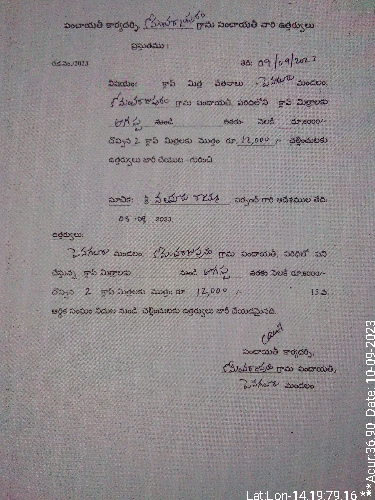 పంచాయతీ కార్యదర్శి, గ్రామ పంచాయతీ వారి ఉత్తర్వులు
ప్రస్తుతము :
రుక.నం./2023 తేది: 09/09/2023
విషయం: క్లాప్ మిత్ర వేతనాలు మండలం,
గ్రామ పంచాయతీ, పరిధిలోని క్లాప్ మిత్రాలకు
ఆగస్ట్ నుండి వరకు నెలకి రూ.6000/-
చొప్పున 2 క్లాప్ మిత్రలకు మొత్తం రూ. 12,000 /- చెల్లించుటకు
ఉత్తర్వులు జారీ చేయుట - గురించి
సూచిక: శ్రీ సర్పంచ్ గారి ఆదేశముల తేది:
2023.
ఉత్తర్వులు:
మండలం, గ్రామ పంచాయతీ, పరిధిలో పని
చేస్తున్న క్లాప్ మిత్రాలకు నుండి ఆగస్ట్ వరకు నెలకి రూ.6000/-
చొప్పున 2 క్లాప్ మిత్రలకు మొత్తం రూ 12,000 15 వ
ఆర్థిక సంఘం నిధుల నుండి చెల్లించుటకు ఉత్తర్వులు జారీ చేయడమైనది.
పంచాయతీ కార్యదర్శి,
గ్రామ పంచాయతీ,
మండలం
Lat:Lon-14.19:79.16 ***Acur:36.90 Date: 10-09-2023